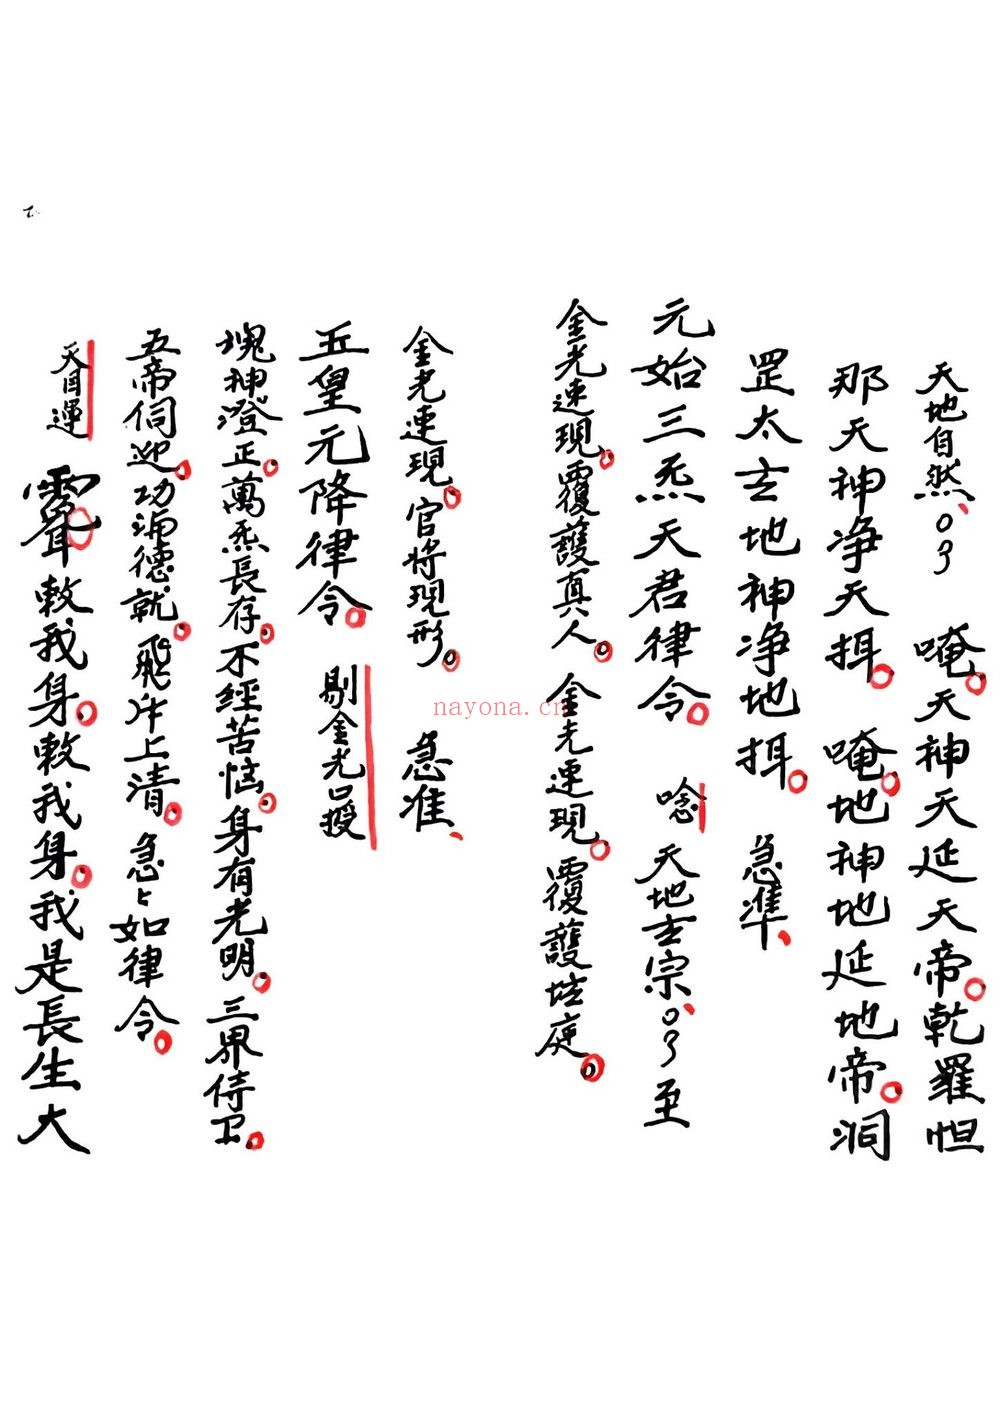 天地自然、〇了 唵。天神天延天帝。乾羅怛
那天神净天揖。唵。地神地延地帝。洞
罡太玄地神净地揖。 急準、
元始三炁天君律令。 唸 天地玄宗、〇了至
金光速現。覆護真人。金光速現。覆護坛庭。
金光速現。官将現形。 急准、
五皇元降律令。 剔金光口授
塊神澄正。萬炁長存。不經苦恼。身有光明。三界侍卫。
五帝伺迎。功满德就。飛升上清。急〻如律令。
天目運 敕我身。敕我身。我是長生大
nayona.cn